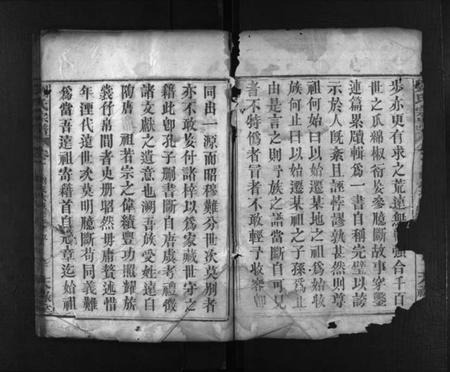 步亦更有求之荒遠無
強合千百
世之瓜綿椒衍妄參臆斷故事穿鑿
連篇累牘輯爲一書自稱完璧以誇
示於人旣紊且誣悖謬孰甚然則尊
祖何始曰以始遷某地之祖爲始收
族何止曰以始遷某祖之子孫爲止
由是言之則予族之譜當斷自可見
者不特僞者盲者不敢輕予收
同出一源而昭穆難分世次莫別者
亦不敢妄付諸梓以爲家藏世守之
籍此卽孔子刪書斷自唐虞考禮徵
諸文獻之遺意也溯吾族受姓遠自
隋唐 祖若宗之偉績豐功照耀於
裳竹帛間者史册昭然毋庸贅述惜
年湮代遠世次莫明臆斷苟同義難
爲當吾遠祖寄籍首自冠章迄始祖